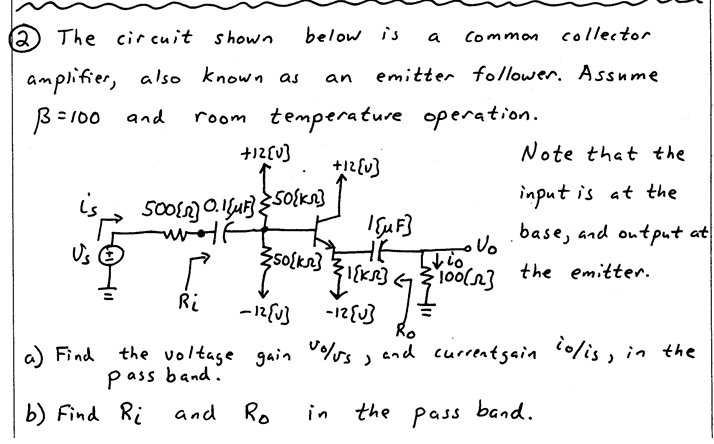 ② The circuit shown below is a common collector
amplifier, also known as an emitter follower. Assume
β=100 and room temperature operation.
+12[V]
+12[V]
Note that the
input is at the
base, and output at
the emitter.
is
500[Ω]
0.1[μF]
50[kΩ]
1[μF]
Vo
io
Vs
+
-
50[kΩ]
1[kΩ]
100[Ω]
Ri
-12[V]
-12[V]
Ro
a) Find the voltage gain vo/vs, and current gain io/is, in the
pass band.
b) Find Ri and Ro in the pass band.